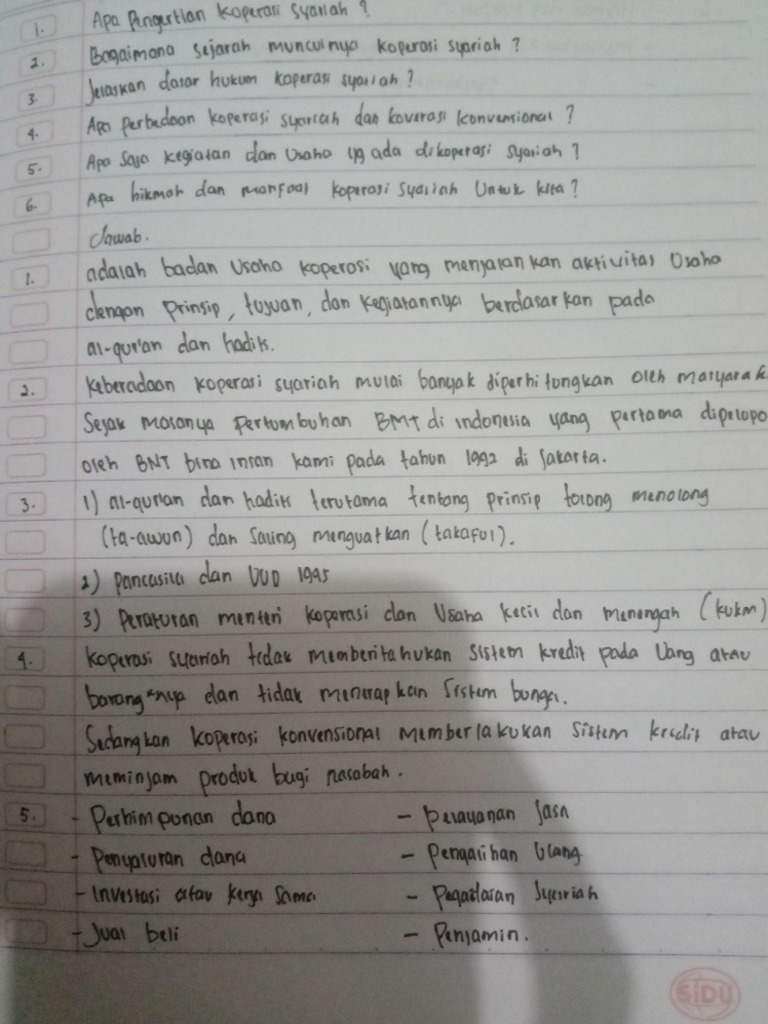 1. Apa Pengertian koperasi syariah ?
2. Bagaimana sejarah munculnya koperasi syariah ?
3. Jelaskan dasar hukum koperasi syariah ?
4. Apa perbedaan koperasi syariah dan koverasi konvensional ?
5. Apa saja kegiatan dan Usaha yg ada dikoperasi syariah ?
6. Apa hikmah dan manfaat koperasi syariah Untuk kita ?
Jawab.
1. adalah badan Usaha koperasi yang menjalankan aktivitas Usaha
dengan prinsip, tujuan, dan kegiatannya berdasarkan pada
al-qur'an dan hadits.
2. keberadaan koperasi syariah mulai banyak diperhitungkan oleh masyarak
Sejak masanya pertumbuhan BMT di indonesia yang pertama dipelopo
oleh BNT bina insan kami pada tahun 1992 di Jakarta.
3. 1) al-qur'an dan hadits terutama tentang prinsip tolong menolong
(ta-awun) dan Saling menguatkan (takaful).
2) pancasila dan UUD 1945
3) Peraturan menteri koperasi dan Usaha kecil dan menengah (kukm)
4. koperasi syariah tidak memberitahukan sistem kredit pada Uang atau
barang"nya dan tidak menerapkan Sistem bunga.
Sedangkan koperasi konvensional memberlakukan sistem kredit atau
meminjam produk bagi nasabah.
5. - Perhimpunan dana - pelayanan Jasa
- Penyaluran dana - Pengalihan Utang
- Investasi atau kerja sama - Pegadaian Syariah
- Jual beli - Penjamin.
SIDU